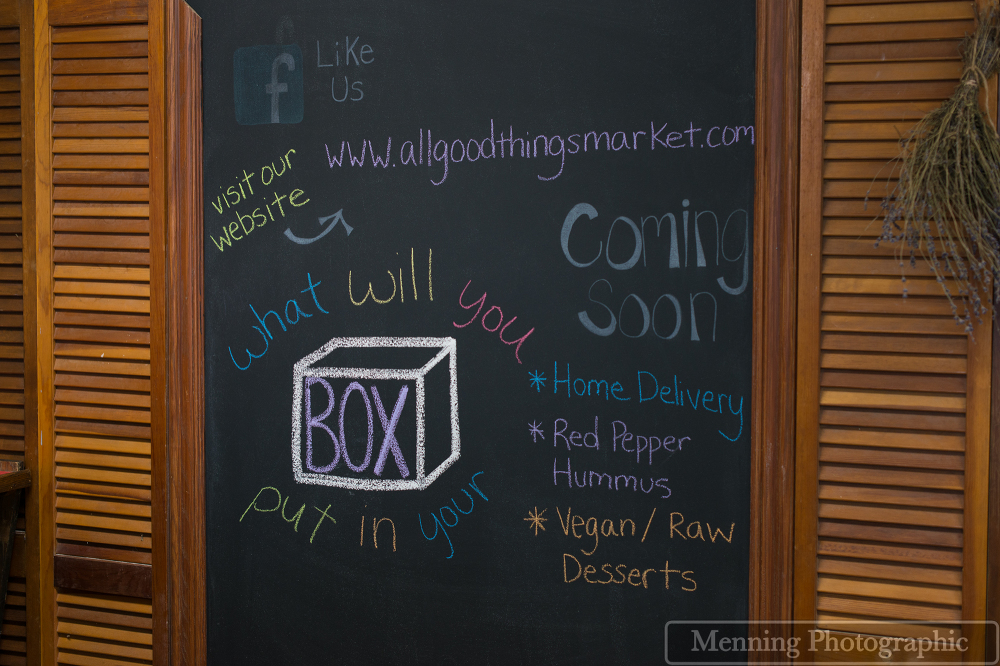 f
LiKe
Us
www.allgoodthingsmarket.com
visit our
website
Coming
Soon
what will you
BOX
put in your
* Home Delivery
* Red Pepper
Hummus
* Vegan/ Raw
Desserts
Menning Photographic